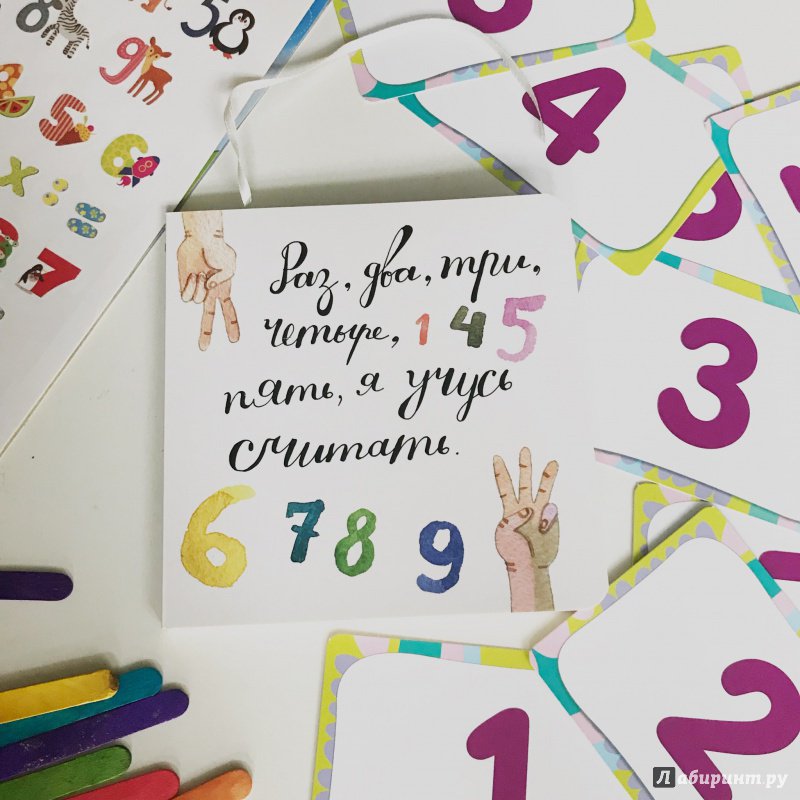 Раз, два, три,
четыре, 1 4 5
пять, я учусь
считать.
6 7 8 9
4
3
1
2
9
5
7
Лабиринт.ру